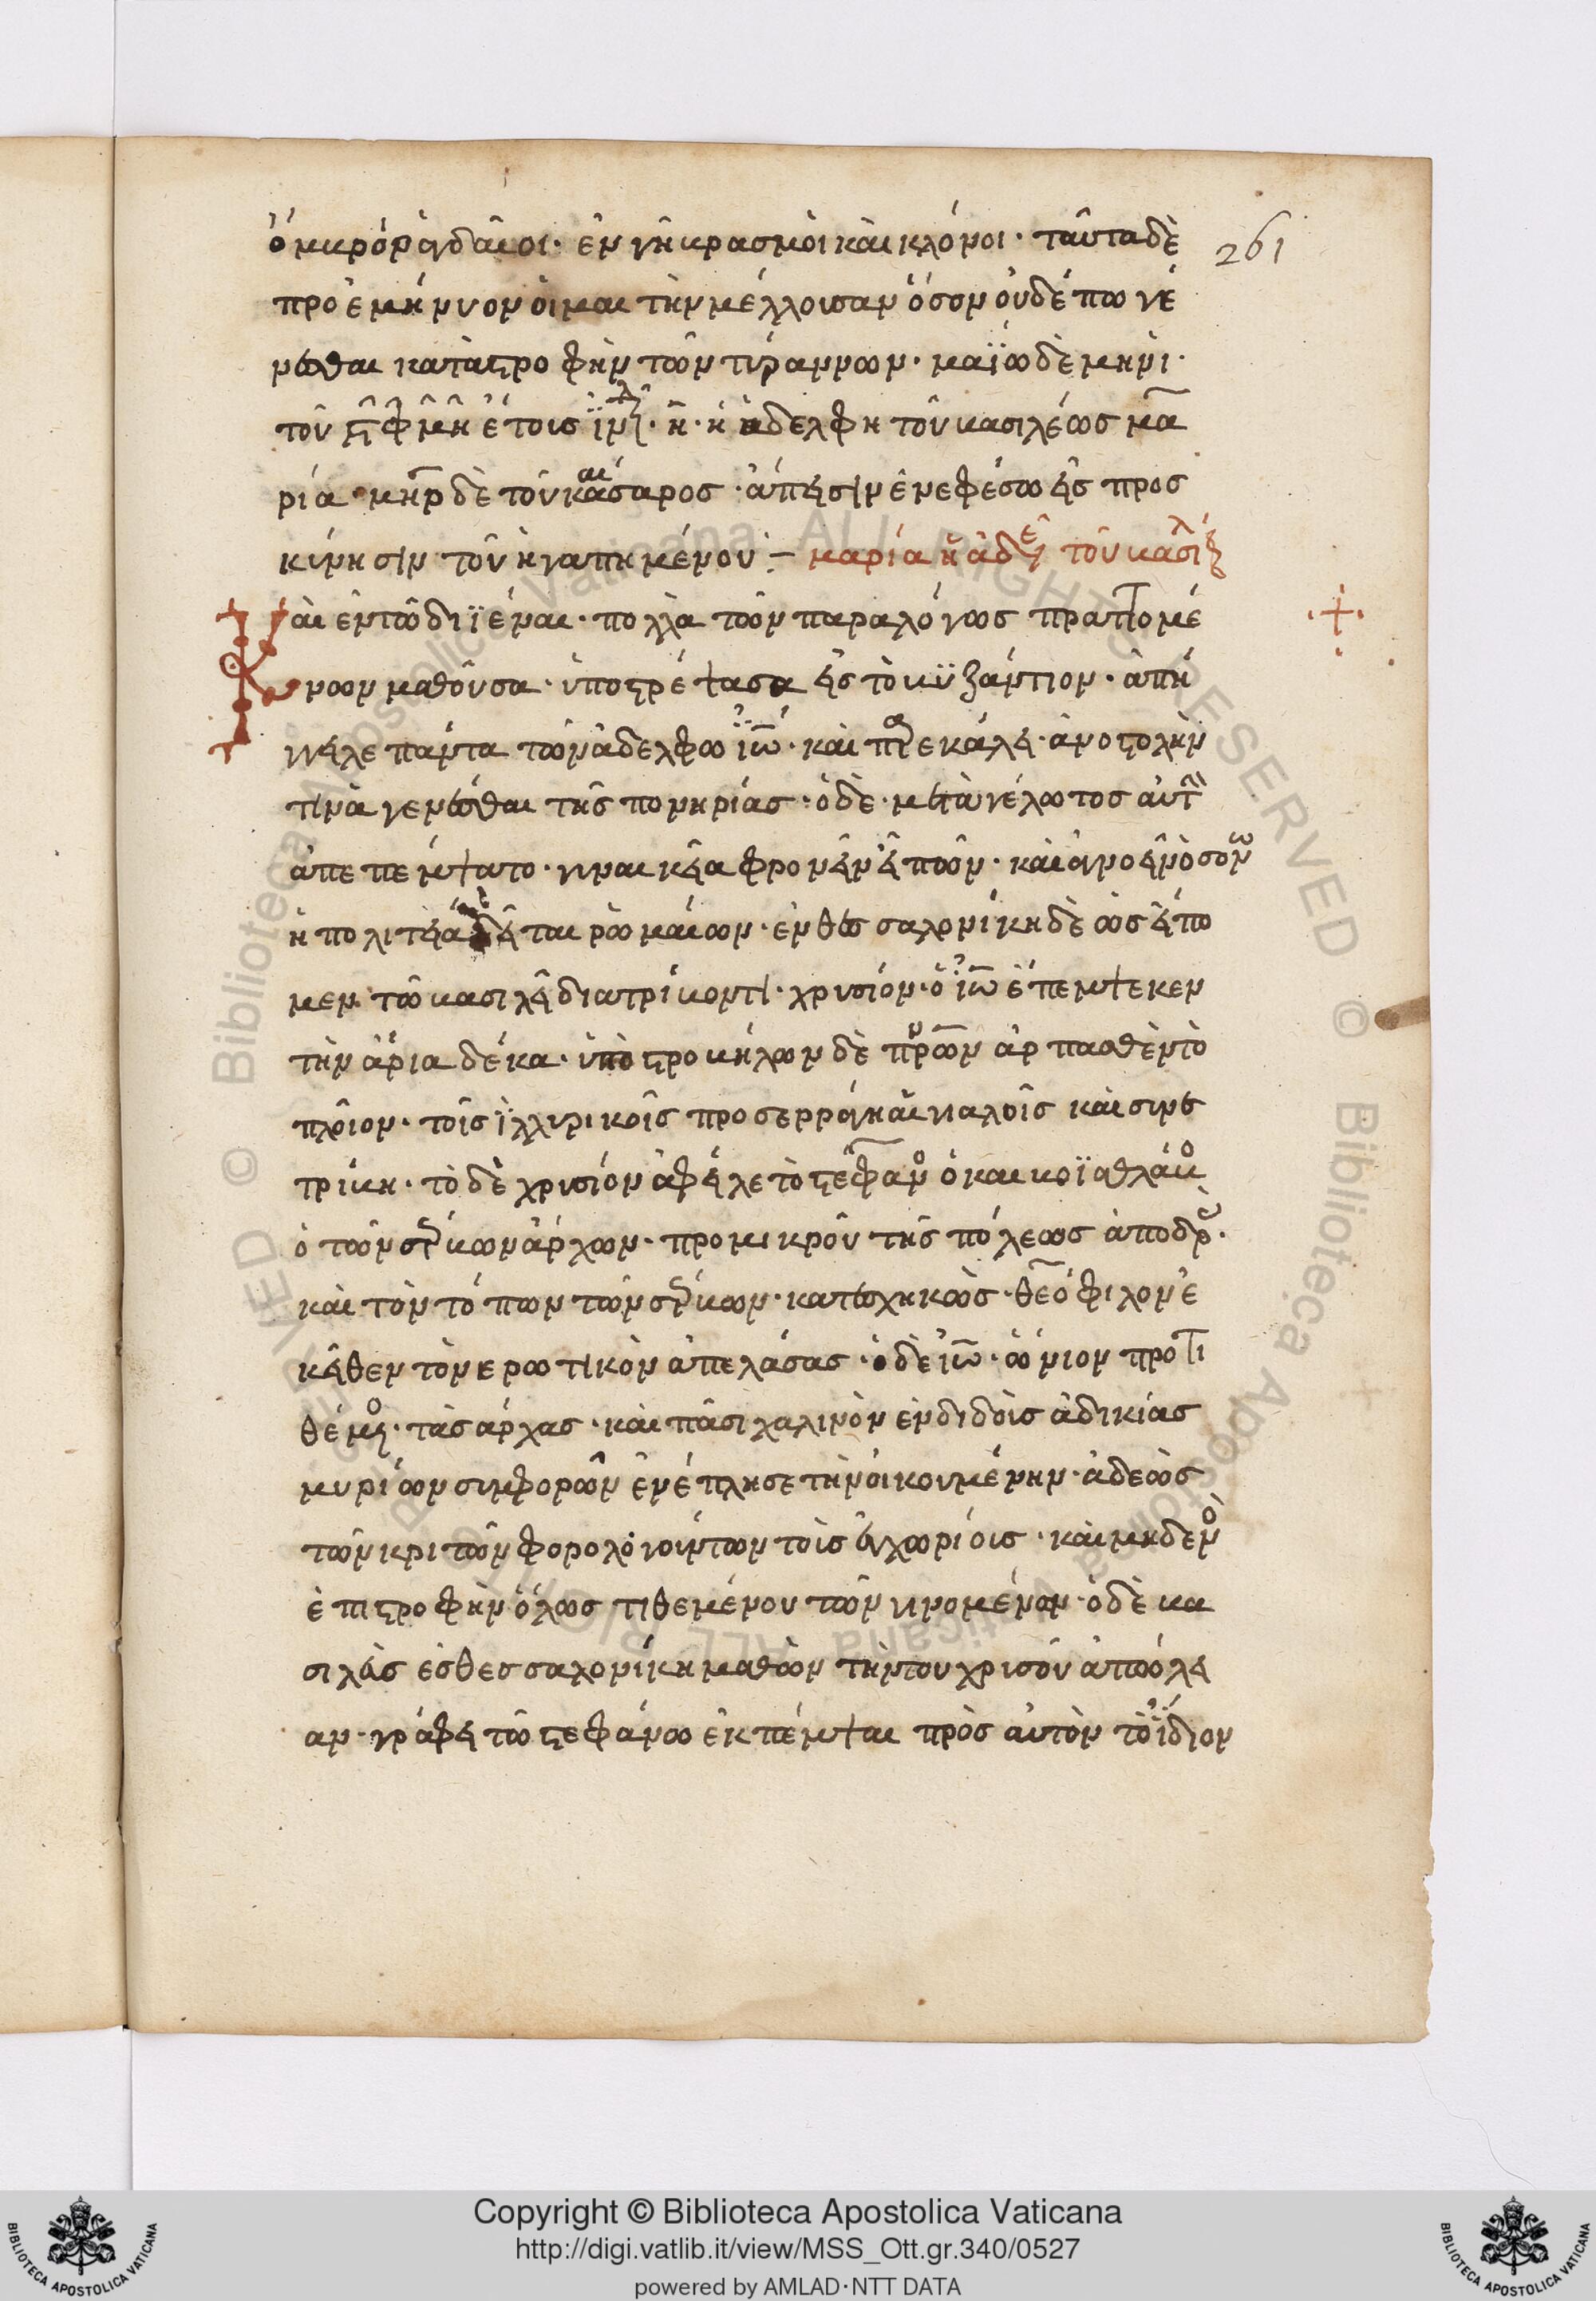 ὄμβρων ῥαγδαῖοι· ἐν γῆ βρασμοὶ καὶ κλόνοι· ταῦτα δὲ
261
προεμήνυον οἶμαι τὴν μέλλουσαν ὅσον οὐδέπω γε
νέσθαι καταστροφὴν τῶν τυράννων· μαΐω δὲ μηνὶ
τοῦ ϛφμη ἔτους ἰνδ· η· ἡ ἀδελφὴ τοῦ βασιλέως μα
ρία· μηρ δὲ τοῦ καίσαρος· ἄπεισιν ἐν ἐφέσω εἰς προσ
κύνησιν τοῦ ἠγαπημένου :– μαρία ἡ ἀδε τοῦ βασιλ
Καὶ ἐν τῶ διϊέναι· πολλὰ τῶν παραλόγως πραττομέ
νων μαθοῦσα· ὑποστρέψασα εἰς τὸ βυζάντιον· ἀπή
γγειλε πάντα τῶν ἀδελφῶ ιω· καὶ πρεκάλει· ἀνοστολὴν
τινὰ γενέσθαι τῆς πονηρίας· ὁ δὲ· μετὰ γέλωτος αὐτὴν
ἀπεπέμψατο· γυναικεία φρονεῖν εἰπών· καὶ ἀγνοεῖν ὅσων
ἡ πολιτεία δεῖται ρωμαίων· ἐν θεσσαλονίκη δὲ ὡς εἴπο
μεν τῶ βασιλεῖ διατρίβοντι· χρυσίον· ὁ ιω ἔπεμψε κεν
τηνάρια δέκα· ὑπὸ στροβήλων δὲ πνων ἁρπασθὲν τὸ
πλοῖον· τοῖς ἰλλυρικοῖς προσερράγη αἰγιαλοῖς καὶ συνε
τρίβη· τὸ δὲ χρυσίον ἀφείλετο στέφανο ὁ καὶ βοϊσθλάβο
ὁ τῶν σέρβων ἄρχων· πρὸ μικροῦ τῆς πόλεως ἀποδρὰς·
καὶ τὸν τόπων τῶν σέρβων· κατεσχηκὼς· θεόφιλον ἐ
κεῖθεν τὸν ἐρωτικὸν ἀπελάσας· ὁ δὲ ιω· ὤνιον προτι
θέμενος· τὰς ἀρχὰς· καὶ πᾶσι χαλινὸν ἐνδιδοὺς ἀδικίας
μυρίων συμφορῶν ἐνέπλησε τὴν οἰκουμένην· ἀδεῶς
τῶν κριτῶν φορολογούντων τοῖς ἐγχωρίοις· καὶ μηδενὸς
ἐπιστροφὴν ὅλως τιθεμένου τῶν γινομένων· ὁ δὲ βα
σιλεὺς ἐς θεσσαλονίκη μαθὼν τὴν του χρυσοῦ ἀπώλει
αν· γράφει τῶ στεφάνω ἐκπέμψαι πρὸς αὐτὸν τὸ ἴδιον
Copyright © Biblioteca Apostolica Vaticana
http://digi.vatlib.it/view/MSS_Ott.gr.340/0527
powered by AMLAD·NTT DATA